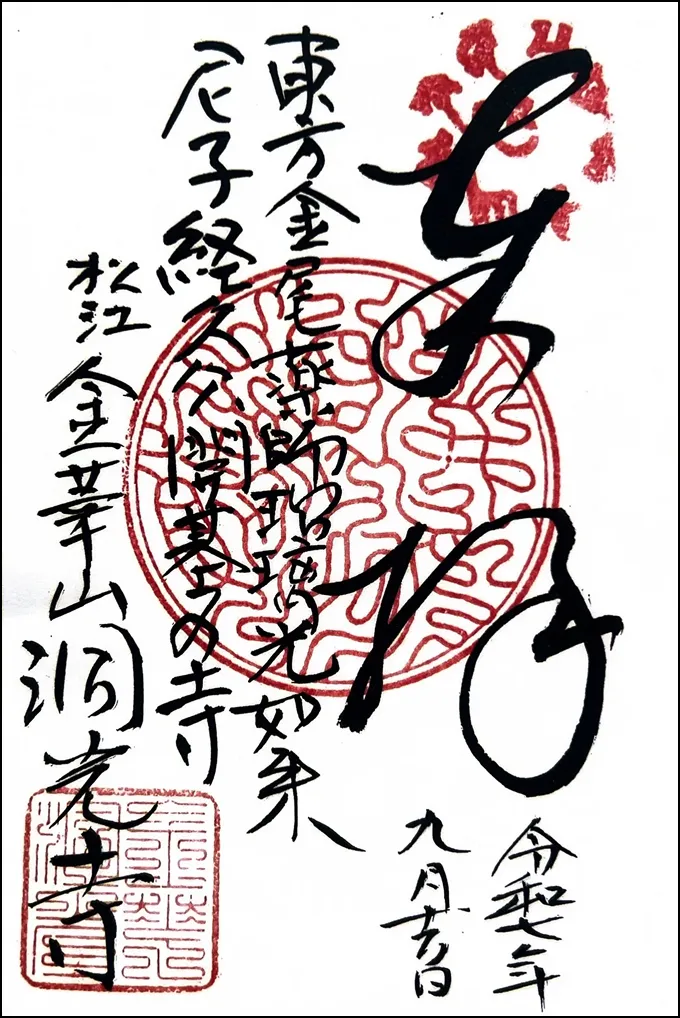 奉拝
令和七年
九月吉日
東方金尾薬師瑠璃光如来
尼子経久公開基の寺
松江 金華山 洞光寺